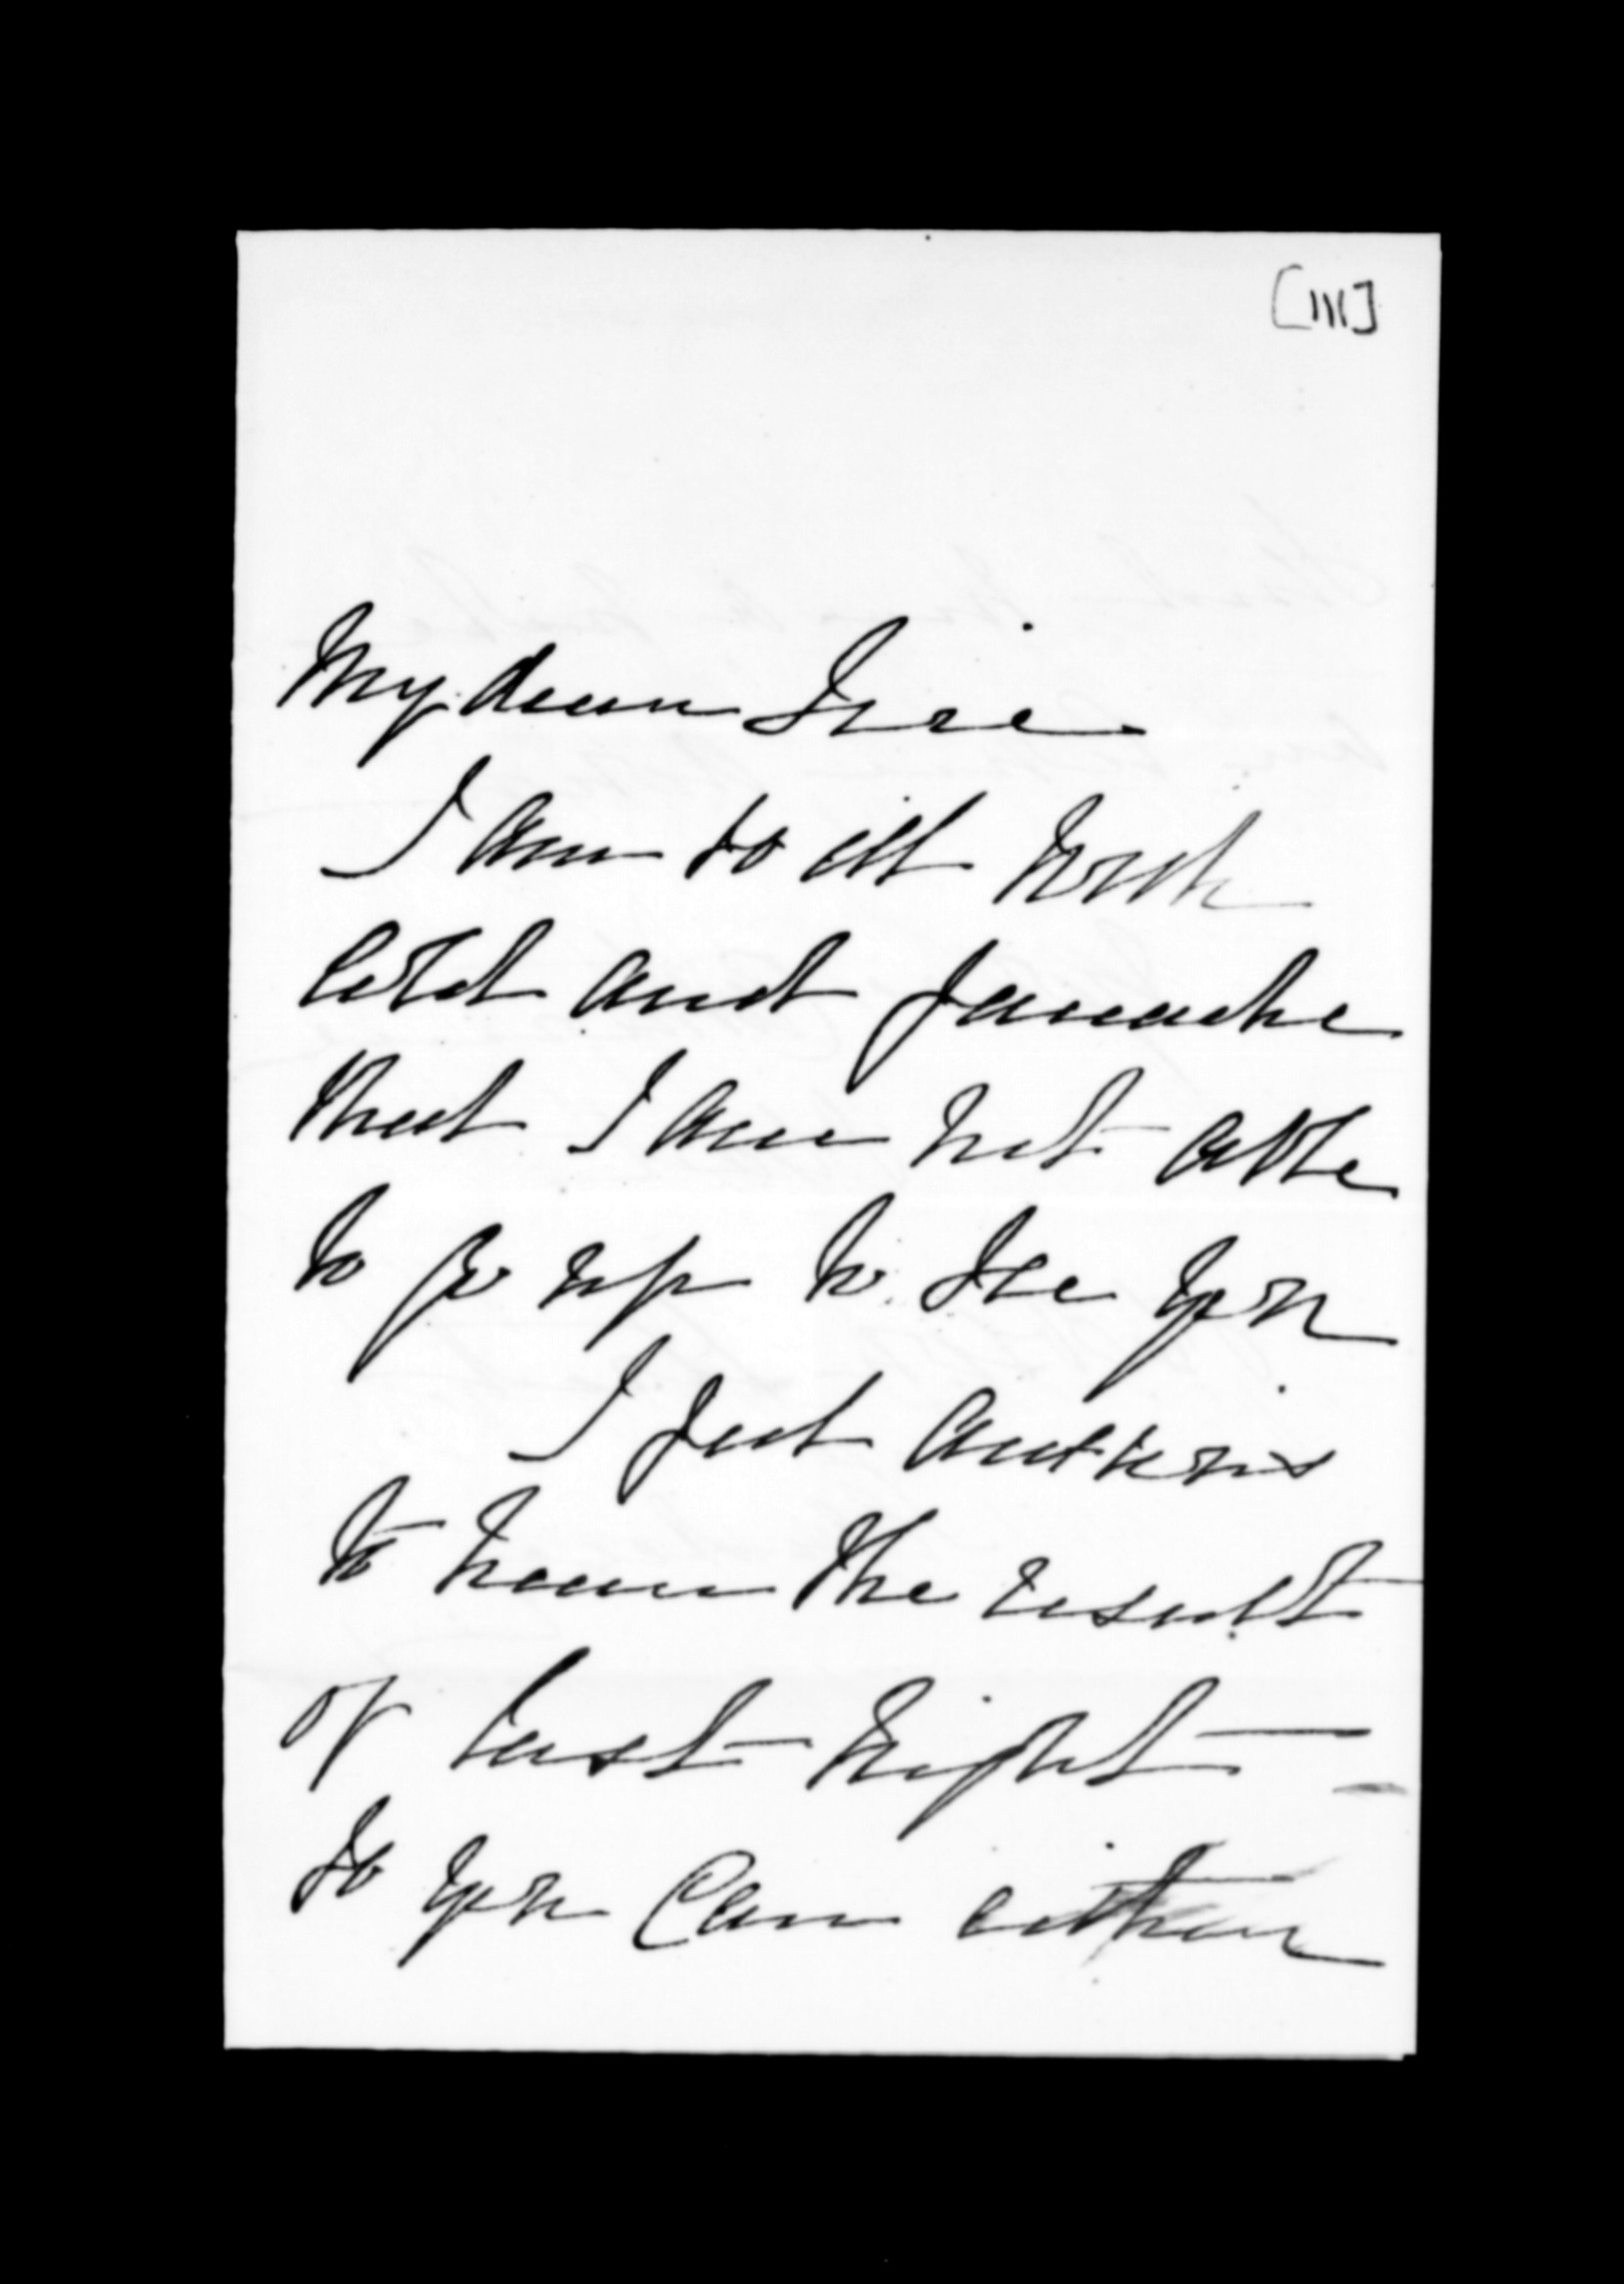 [111]
My dear Sir
I am so ill with
cold and faceache
that I am not able
to go up to see you
I feel anxious
to know the result
of last night
so you can either